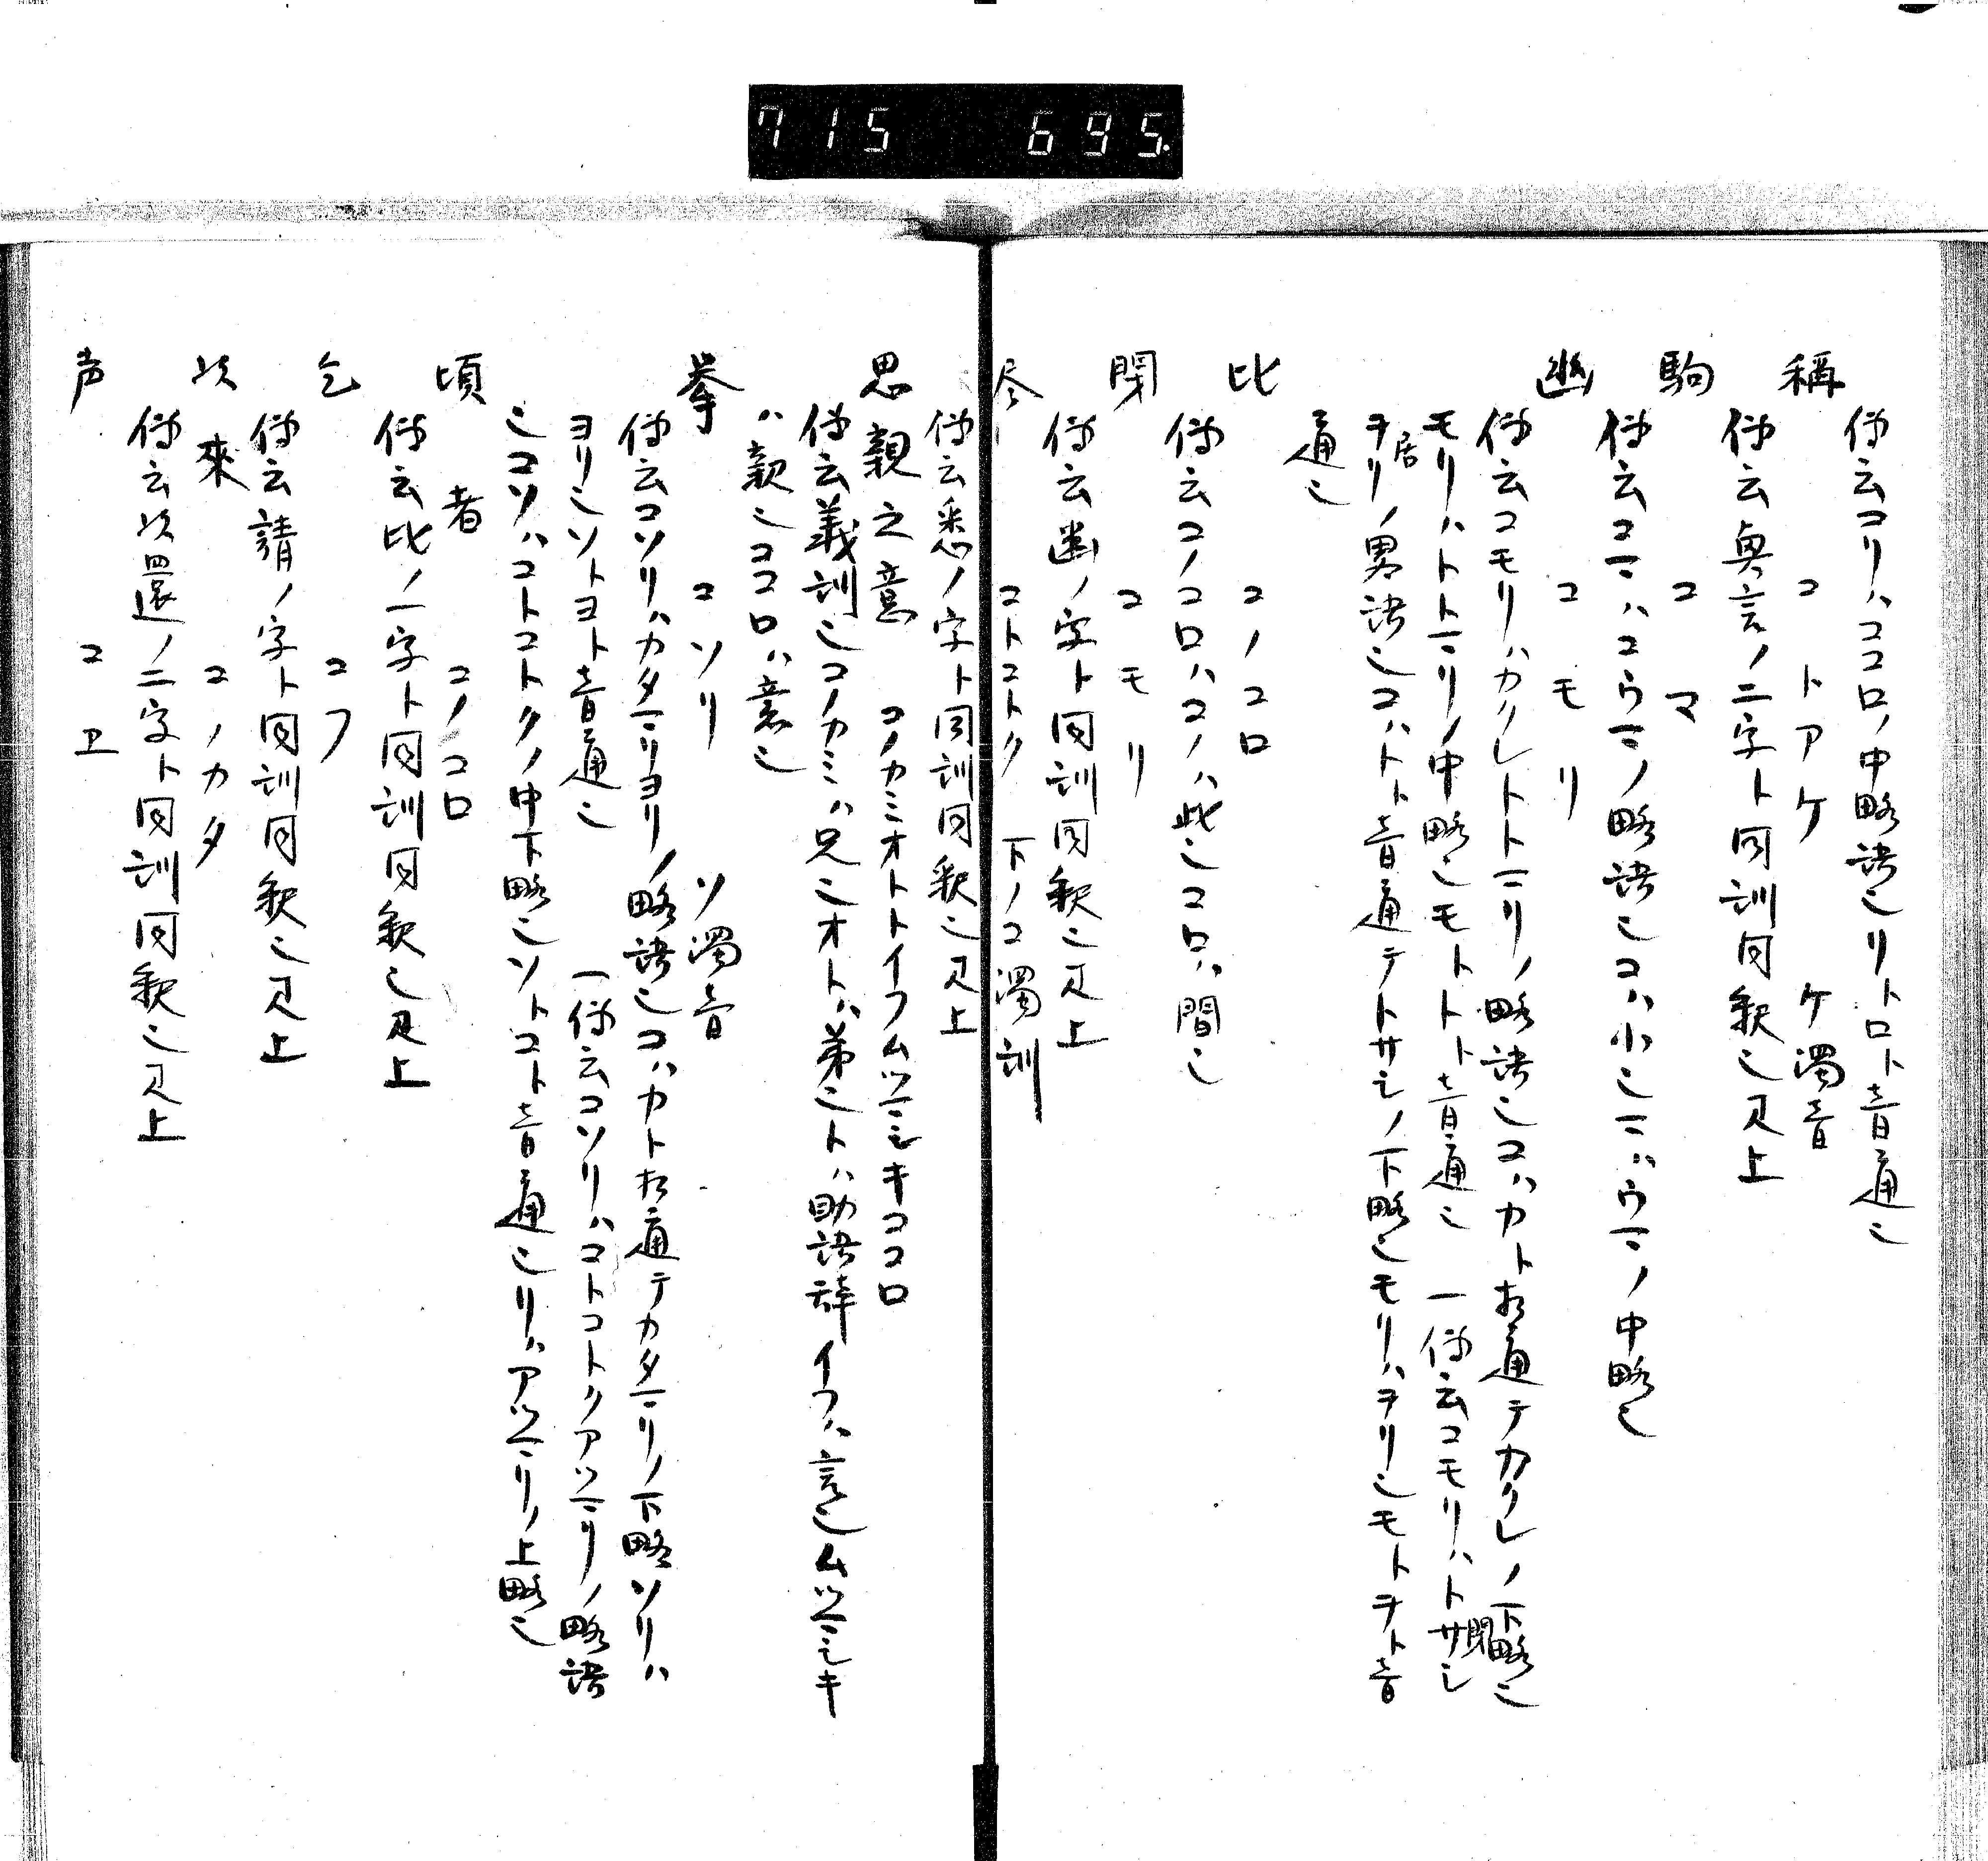 715 695.
傳云コリハココロノ中略語也リトロト音通也
稱 コトアケ ケ濁音
傳云興言ノ二字ト同訓同釈也見上
駒 コマ
傳云コマハコウマノ略語也コハ小也マハウマノ中略也
幽 コモリ
傳云コモリハカクレトトマリノ略語也コハカト相通テカクレノ下略也
モリハトトマリノ中略也モトトト音通也 一傳云コモリハトサシ閇
ヲリ居ノ略語也コハトト音通テトサシノ下略也モリハヲリ也モトヲト音
通也
比 コノコロ
傳云コノコロハコノハ此也コロハ間也
閇 コモリ
傳云幽ノ字ト同訓同釈也見上
尽 コトコトク 下ノコ濁訓
傳云悉ノ字ト同訓同釈也見上
思親之意 コノカミオトトイフムツマシキココロ
傳云義訓也コノカミハ兄也オトハ弟也トハ助語辞イフハ言也ムツマシキ
ハ親也ココロハ意也
挙 コソリ ソ濁音
傳云コソリハカタマリヨリノ略語也コハカト相通テカタマリノ下略ソリハ
ヨリ也ソトヨト音通也 一傳云コソリハコトコトクアツマリノ略語
也コソハコトコトクノ中下略也ソトコト音通也リハアツマリノ上略也
頃者 コノコロ
傳云比ノ一字ト同訓同釈也見上
乞 コフ
傳云請ノ字ト同訓同釈也見上
以來 コノカタ
傳云以還ノ二字ト同訓同釈也見上
声 コヱ